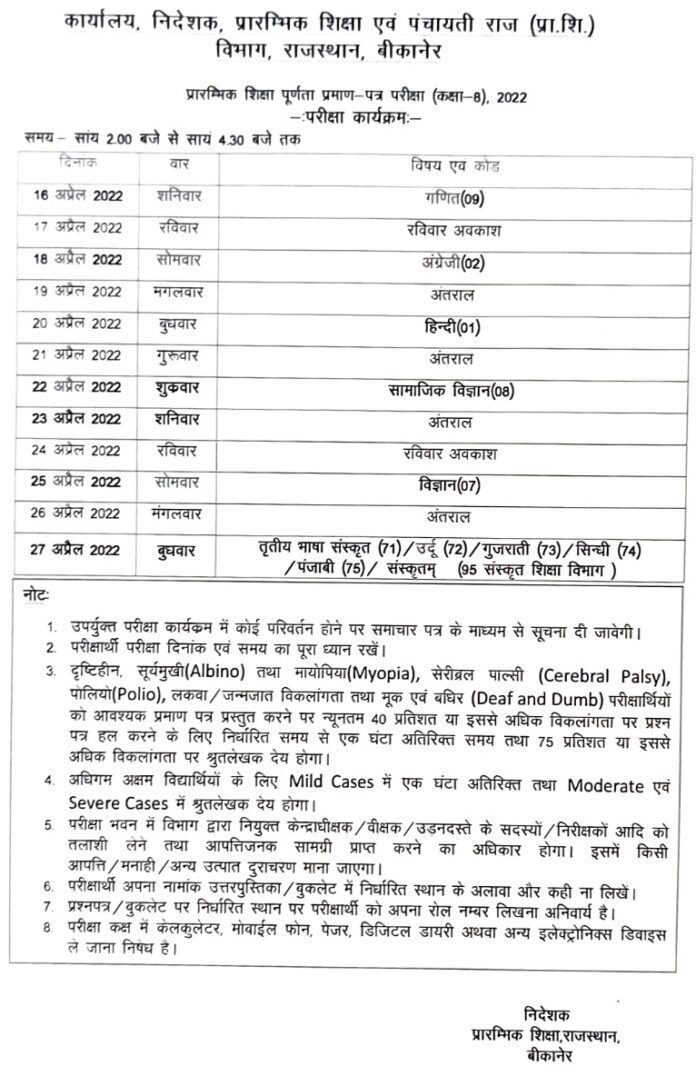 कार्यालय, निदेशक, प्रारम्भिक शिक्षा एवं पंचायती राज (प्रा.शि.)
विभाग, राजस्थान, बीकानेर
प्रारम्भिक शिक्षा पूर्णता प्रमाण–पत्र परीक्षा (कक्षा–8), 2022
–:परीक्षा कार्यक्रम:–
समय – सांय 2.00 बजे से सायं 4.30 बजे तक
दिनांक वार विषय एव कोड
16 अप्रेल 2022 शनिवार गणित(09)
17 अप्रैल 2022 रविवार रविवार अवकाश
18 अप्रैल 2022 सोमवार अंग्रेजी(02)
19 अप्रेल 2022 मगलवार अंतराल
20 अप्रैल 2022 बुधवार हिन्दी(01)
21 अप्रैल 2022 गुरूवार अंतराल
22 अप्रैल 2022 शुक्रवार सामाजिक विज्ञान(08)
23 अप्रैल 2022 शनिवार अंतराल
24 अप्रैल 2022 रविवार रविवार अवकाश
25 अप्रैल 2022 सोमवार विज्ञान(07)
26 अप्रैल 2022 मंगलवार अंतराल
27 अप्रैल 2022 बुधवार तृतीय भाषा संस्कृत (71)/उर्दू (72)/गुजराती (73)/सिन्धी (74)
/पंजाबी (75)/ संस्कृतम् (95 संस्कृत शिक्षा विभाग )
नोटः
1. उपर्युक्त परीक्षा कार्यक्रम में कोई परिवर्तन होने पर समाचार पत्र के माध्यम से सूचना दी जावेगी।
2. परीक्षार्थी परीक्षा दिनांक एवं समय का पूरा ध्यान रखें।
3. दृष्टिहीन, सूर्यमुखी(Albino) तथा मायोपिया(Myopia), सेरीब्रल पाल्सी (Cerebral Palsy),
पोलियो(Polio), लकवा/जन्मजात विकलांगता तथा मूक एवं बधिर (Deaf and Dumb) परीक्षार्थियों
को आवश्यक प्रमाण पत्र प्रस्तुत करने पर न्यूनतम 40 प्रतिशत या इससे अधिक विकलांगता पर प्रश्न
पत्र हल करने के लिए निर्धारित समय से एक घंटा अतिरिक्त समय तथा 75 प्रतिशत या इससे
अधिक विकलांगता पर श्रुतलेखक देय होगा।
4. अधिगम अक्षम विद्यार्थियों के लिए Mild Cases में एक घंटा अतिरिक्त तथा Moderate एवं
Severe Cases में श्रुतलेखक देय होगा।
5. परीक्षा भवन में विभाग द्वारा नियुक्त केन्द्राधीक्षक/वीक्षक/उड़नदस्ते के सदस्यों/निरीक्षकों आदि को
तलाशी लेने तथा आपत्तिजनक सामग्री प्राप्त करने का अधिकार होगा। इसमें किसी
आपत्ति/मनाही/अन्य उत्पात दुराचरण माना जाएगा।
6. परीक्षार्थी अपना नामांक उत्तरपुस्तिका/बुकलेट में निर्धारित स्थान के अलावा और कही ना लिखें।
7. प्रश्नपत्र/बुकलेट पर निर्धारित स्थान पर परीक्षार्थी को अपना रोल नम्बर लिखना अनिवार्य है।
8. परीक्षा कक्ष में केलकुलेटर, मोवाईल फोन, पेजर, डिजिटल डायरी अथवा अन्य इलेक्ट्रोनिक्स डिवाइस
ले जाना निषेध है।
निदेशक
प्रारम्भिक शिक्षा,राजस्थान,
बीकानेर